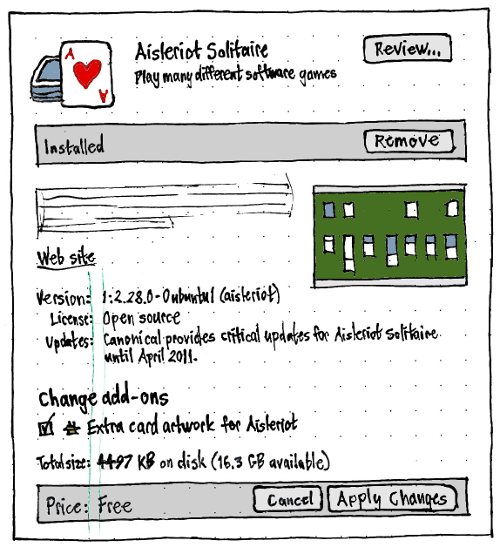 Aisleriot Solitaire
Play many different software games
Review...
A
A
Installed
Remove
Web site
Version: 1:2.28.0-0ubuntu1 (aisleriot)
License: Open source
Updates: Canonical provides critical updates for Aisleriot Solitaire
until April 2011.
Change add-ons
Extra card artwork for Aisleriot
Total size: 4497 KB on disk (16.3 GB available)
Price: Free
Cancel
Apply Changes